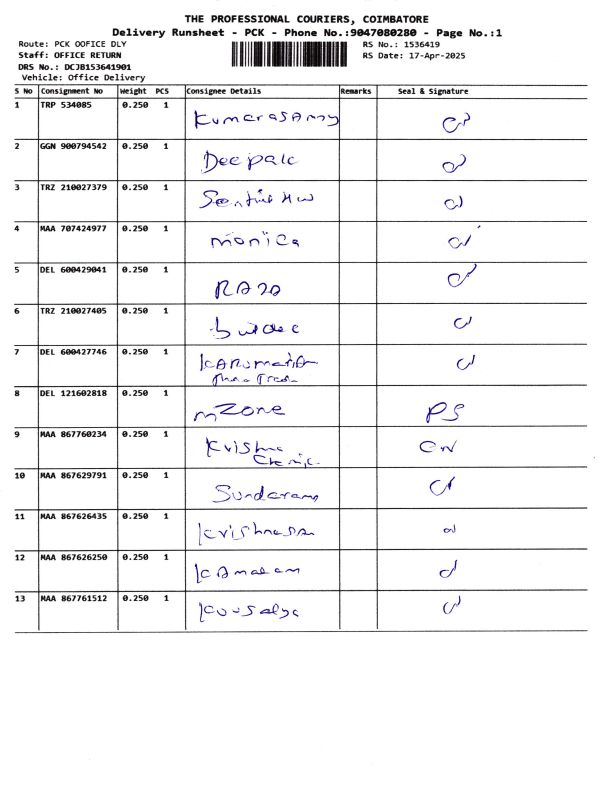 THE PROFESSIONAL COURIERS, COIMBATORE
Delivery Runsheet - PCK - Phone No.:9047080280 - Page No.:1
Route: PCK OOFICE DLY
RS No.: 1536419
Staff: OFFICE RETURN
RS Date: 17-Apr-2025
DRS No.: DCJB153641901
Vehicle: Office Delivery
S No Consignment No Weight PCS Consignee Details Remarks Seal & Signature
1 TRP 534085 0.250 1 Kumarasamy
2 GGN 900794542 0.250 1 Deepak
3 TRZ 210027379 0.250 1
4 MAA 707424977 0.250 1 monica
5 DEL 600429041 0.250 1
6 TRZ 210027405 0.250 1
7 DEL 600427746 0.250 1
8 DEL 121602818 0.250 1 mZone PS
9 MAA 867760234 0.250 1 Krishna
10 MAA 867629791 0.250 1 Sundaram
11 MAA 867626435 0.250 1 Krishnasa
12 MAA 867626250 0.250 1
13 MAA 867761512 0.250 1 Kousalya